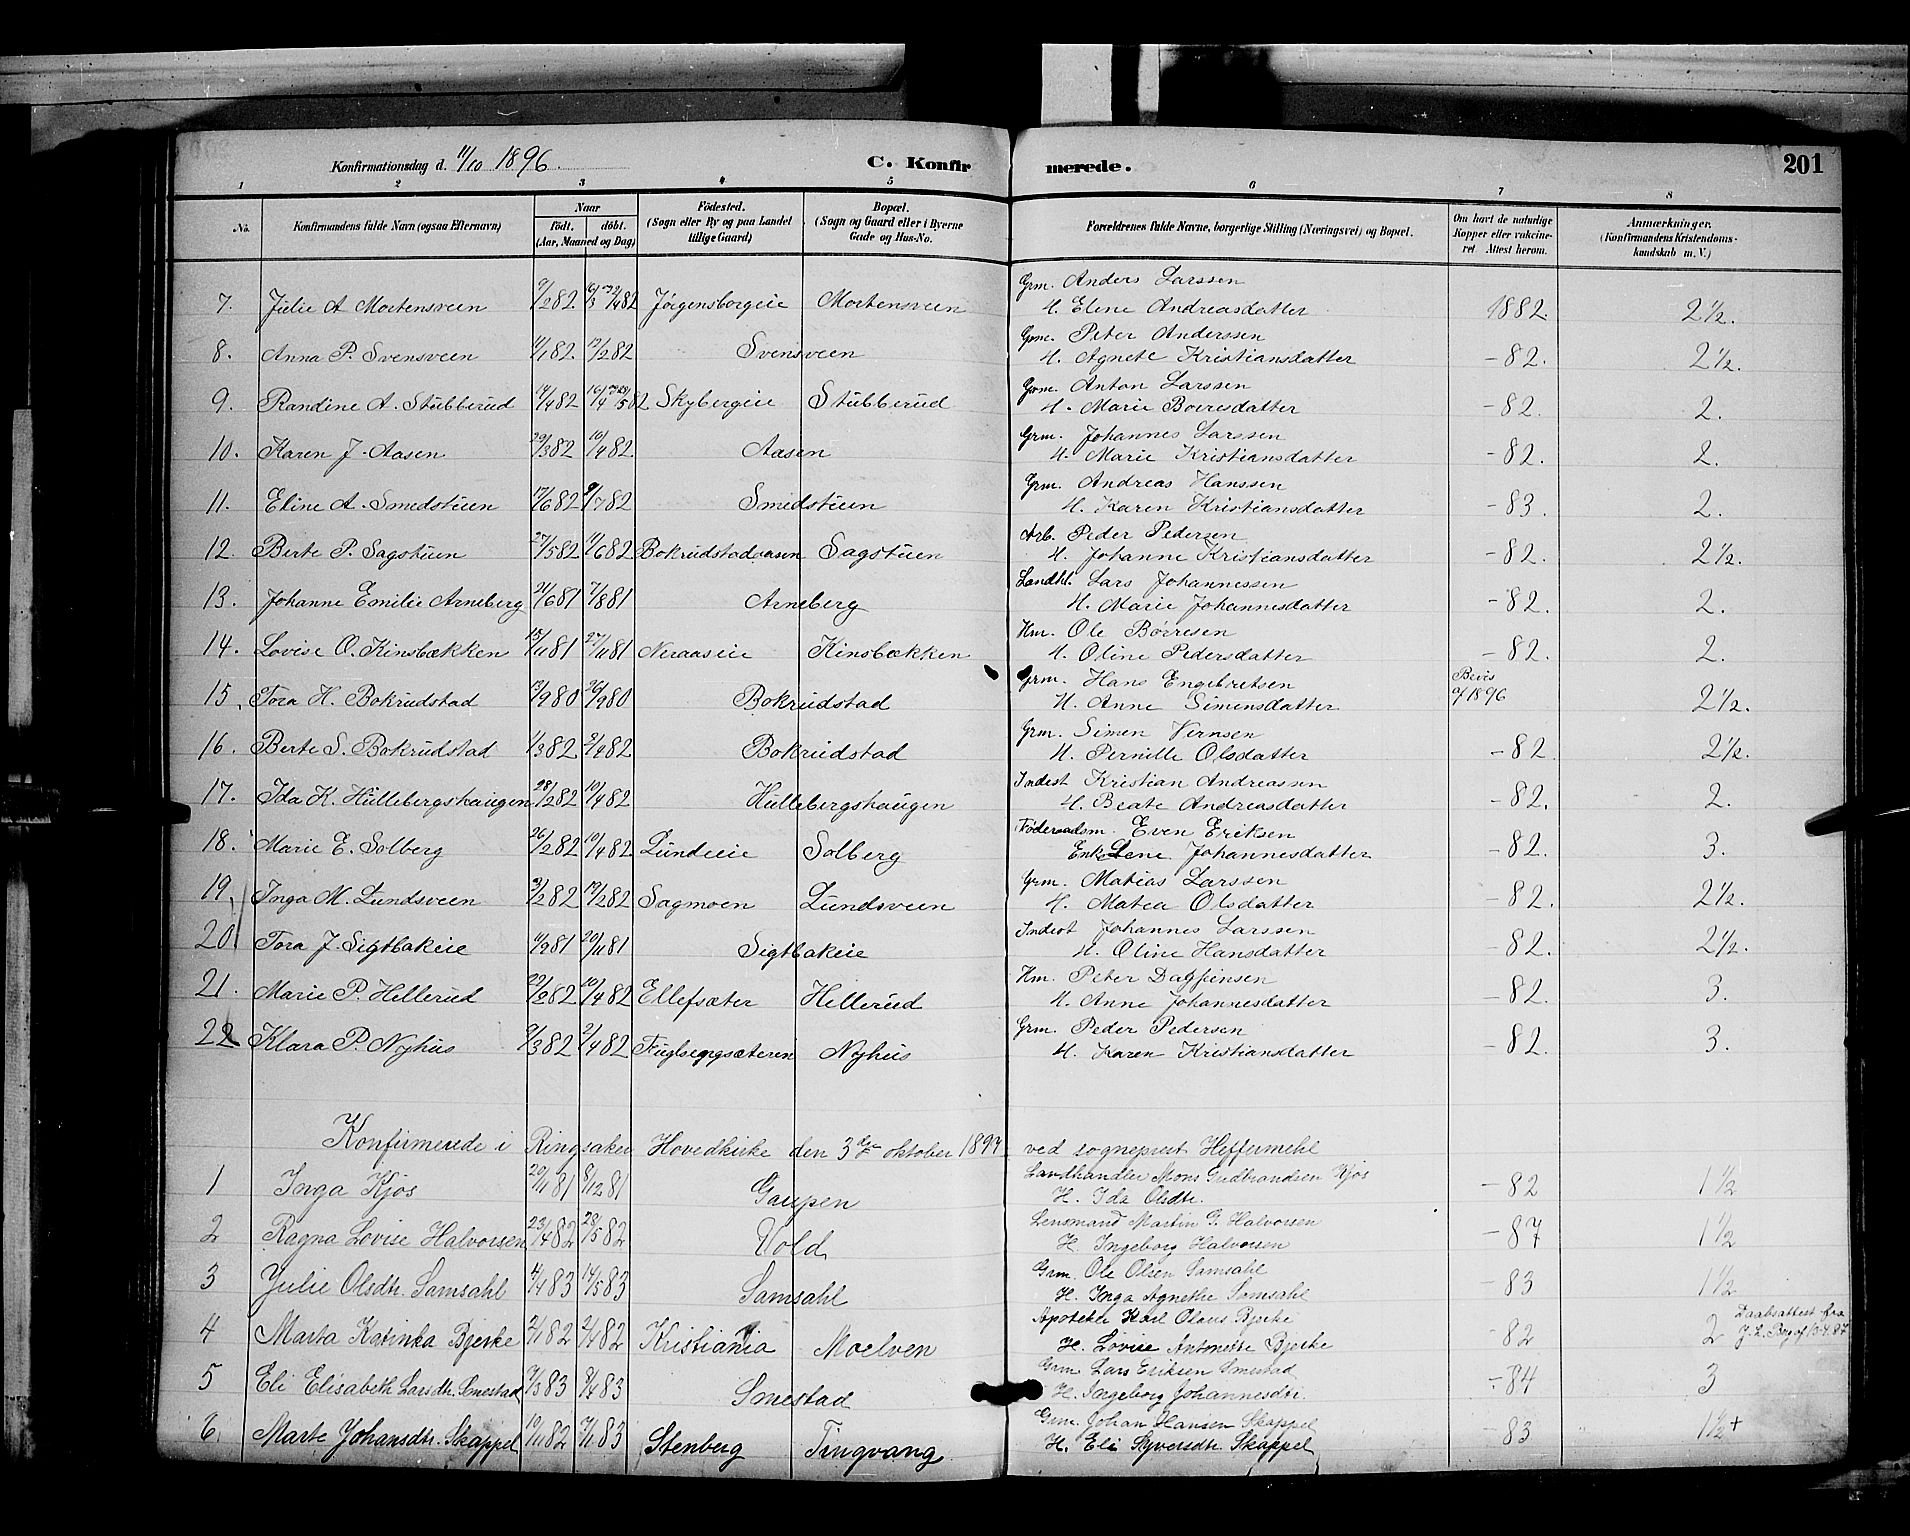 Konfirmationsdag d. 11/10 1896. C. Konfirmerede. 201
1 2 3 4 5 6 7 8
No. Konfirmandens fulde Navn (ogsaa Efternavn) Naar født. døbt. (Aar, Maaned og Dag) Fødested. (Sogn eller By og paa Landet tillige Gaard) Bopæl. (Sogn og Gaard eller i Byerne Gade og Hus-No. Forældrenes fulde Navne, borgerlige Stilling (Næringsvei) og Bopæl. Om havt de naturlige Kopper eller vaccineret. Attest herom. Anmærkninger. (Konfirmandens Kristendomskundskab m. V.)
7. Julie A Mortensveen 9/2 82. Jørgensborgeie Mortensveen Grm. Anders Larssen
H. Eline Andreasdatter 1882. 2½.
8. Anna P. Svensveen 11/1 82. 12/2 82 Svensveen Grm. Peter Anderssen
H. Agnete Kristiansdatter -82. 2½.
9. Randine A. Stubberud 14/4 82 Skybergeie Stubberud Grm. Anton Larssen
H. Marie Borresdatter -82. 2.
10. Karen J. Aasen 29/3 82 10/4 82. Aasen Grm. Johannes Larssen
H. Marie Kristiansdatter -82. 2.
11. Eline A. Smedstuen 17/6 82 9/7 82 Smedstuen Grm. Andreas Hanssen
H. Karen Kristiansdatter -83. 2.
12. Berte P. Sagstuen 27/5 82 11/6 82 Bokrudstadaasen Sagstuen Arb. Peder Pedersen
H. Johanne Kristiansdatter -82. 2½.
13. Johanne Emilie Arneberg 21/6 81 7/8 81 Arneberg Landhl. Lars Johannessen
H. Marie Johannesdatter -82. 2.
14. Lovise O. Kinsbækken 15/11 81 27/11 81 Neraaseie Kinsbækken Hm. Ole Børresen
H. Oline Pedersdatter -82. 2.
15. Tora H. Bokrudstad 12/9 80 26/9 80 Bokrudstad Grm. Hans Engebretsen
H. Anne Simensdatter Bevis af 1896 2½.
16. Berte S. Bokrudstad 1/3 82 2/4 82 Bokrudstad Grm. Simen Vernsen
H. Pernille Olsdatter -82. 2½.
17. Ida K. Hullebergshaugen 28/2 82 10/4 82 Hullebergshaugen Inderst Kristian Andreassen
H. Beate Andreasdatter -82. 2.
18. Marie E. Solberg 26/2 82 10/4 82 Lundeie Solberg Føderaadsm. Even Eriksen
Enke Lene Johannesdatter -82. 3.
19. Inga M. Lundsveen 3/2 82 19/2 82 Sagmoen Lundsveen Grm. Matias Larssen
H. Matea Olsdatter -82. 2½.
20. Tora J. Sigtbakeie 11/9 81 20/11 81 Sigtbakeie Inderst Johannes Larssen
H. Oline Hansdatter -82. 2½.
21. Marie P. Hellerud 22/2 82 10/4 82 Ellefsæter Hellerud Hm. Peter Dagfinsen
H. Anne Johannesdatter -82. 3.
22 Klara P. Nyhus 9/3 82 2/4 82 Nyhus Grm. Peder Pedersen
H. Karen Kristiansdatter -82. 3.
Konfirmerede i Ringsaker Hovedkirke den 3die oktober 1897 ved sogneprest Heffermehl
1 Inga Kjos 20/11 81 8/12 81 Gaupen Landhandler Mons Gudbrandsen Kjos
H. Ida Olsdtr. -82 1½
2 Ragna Lovise Halvorsen 23/4 82 28/5 82 Vold Lensmand Martin G. Halvorsen
H. Ingeborg Halvorsen -87 1½
3 Julie Olsdtr. Samsahl 4/4 83 14/5 83 Samsahl Grm. Ole Olsen Samsahl
H. Inga Agnethe Samsahl -83 1½
4 Marta Katinka Bjerke 2/1 82 2/4 82 Kristiania Moelven Apoteker Karl Olaus Bjerke
H. Lovise Antonette Bjerke -82 2 Daabsattest fra
5 Eli Elisabeth Larsdtr. Smestad 7/3 83 8/4 83 Smestad Grm Lars Eriksen Smestad
H. Ingeborg Johannesdtr. -84 3
6 Marte Johansdtr. Skappel 10/11 82 83 Stenberg Tingvang Grm. Johan Hansen Skappel
H. Eli Syversdtr. Skappel -83 1½ +